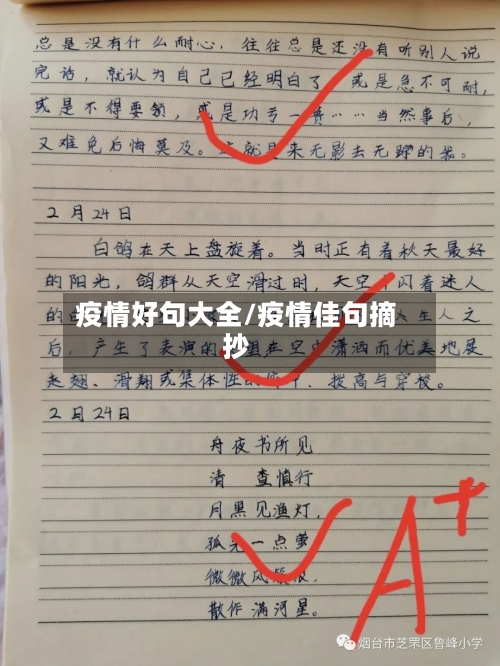 总是没有什么耐心，往往总是还没有听别人说
完话，就认为自己已经明白了，或是急不可耐，
或是不得要领，或是功亏一篑……当然事后，
又难免后悔莫及。这就是来无影去无踪的我。
2月24日
白鸽在天上盘旋着。当时正有着秋天最好
的阳光，鸽群从天空滑过时，天空 闪着迷人
疫情好句大全/疫情佳句摘
抄
的 生人之
后，产生了表演的 在空中潇洒而优美地展
走翅、滑翔或集体性的 、拔高与穿梭。
2月24日
舟夜书所见
清 查慎行
月黑见渔灯，
孤光一点萤
微微风簇浪，
散作满河星。
A+
烟台市芝罘区鲁峰小学